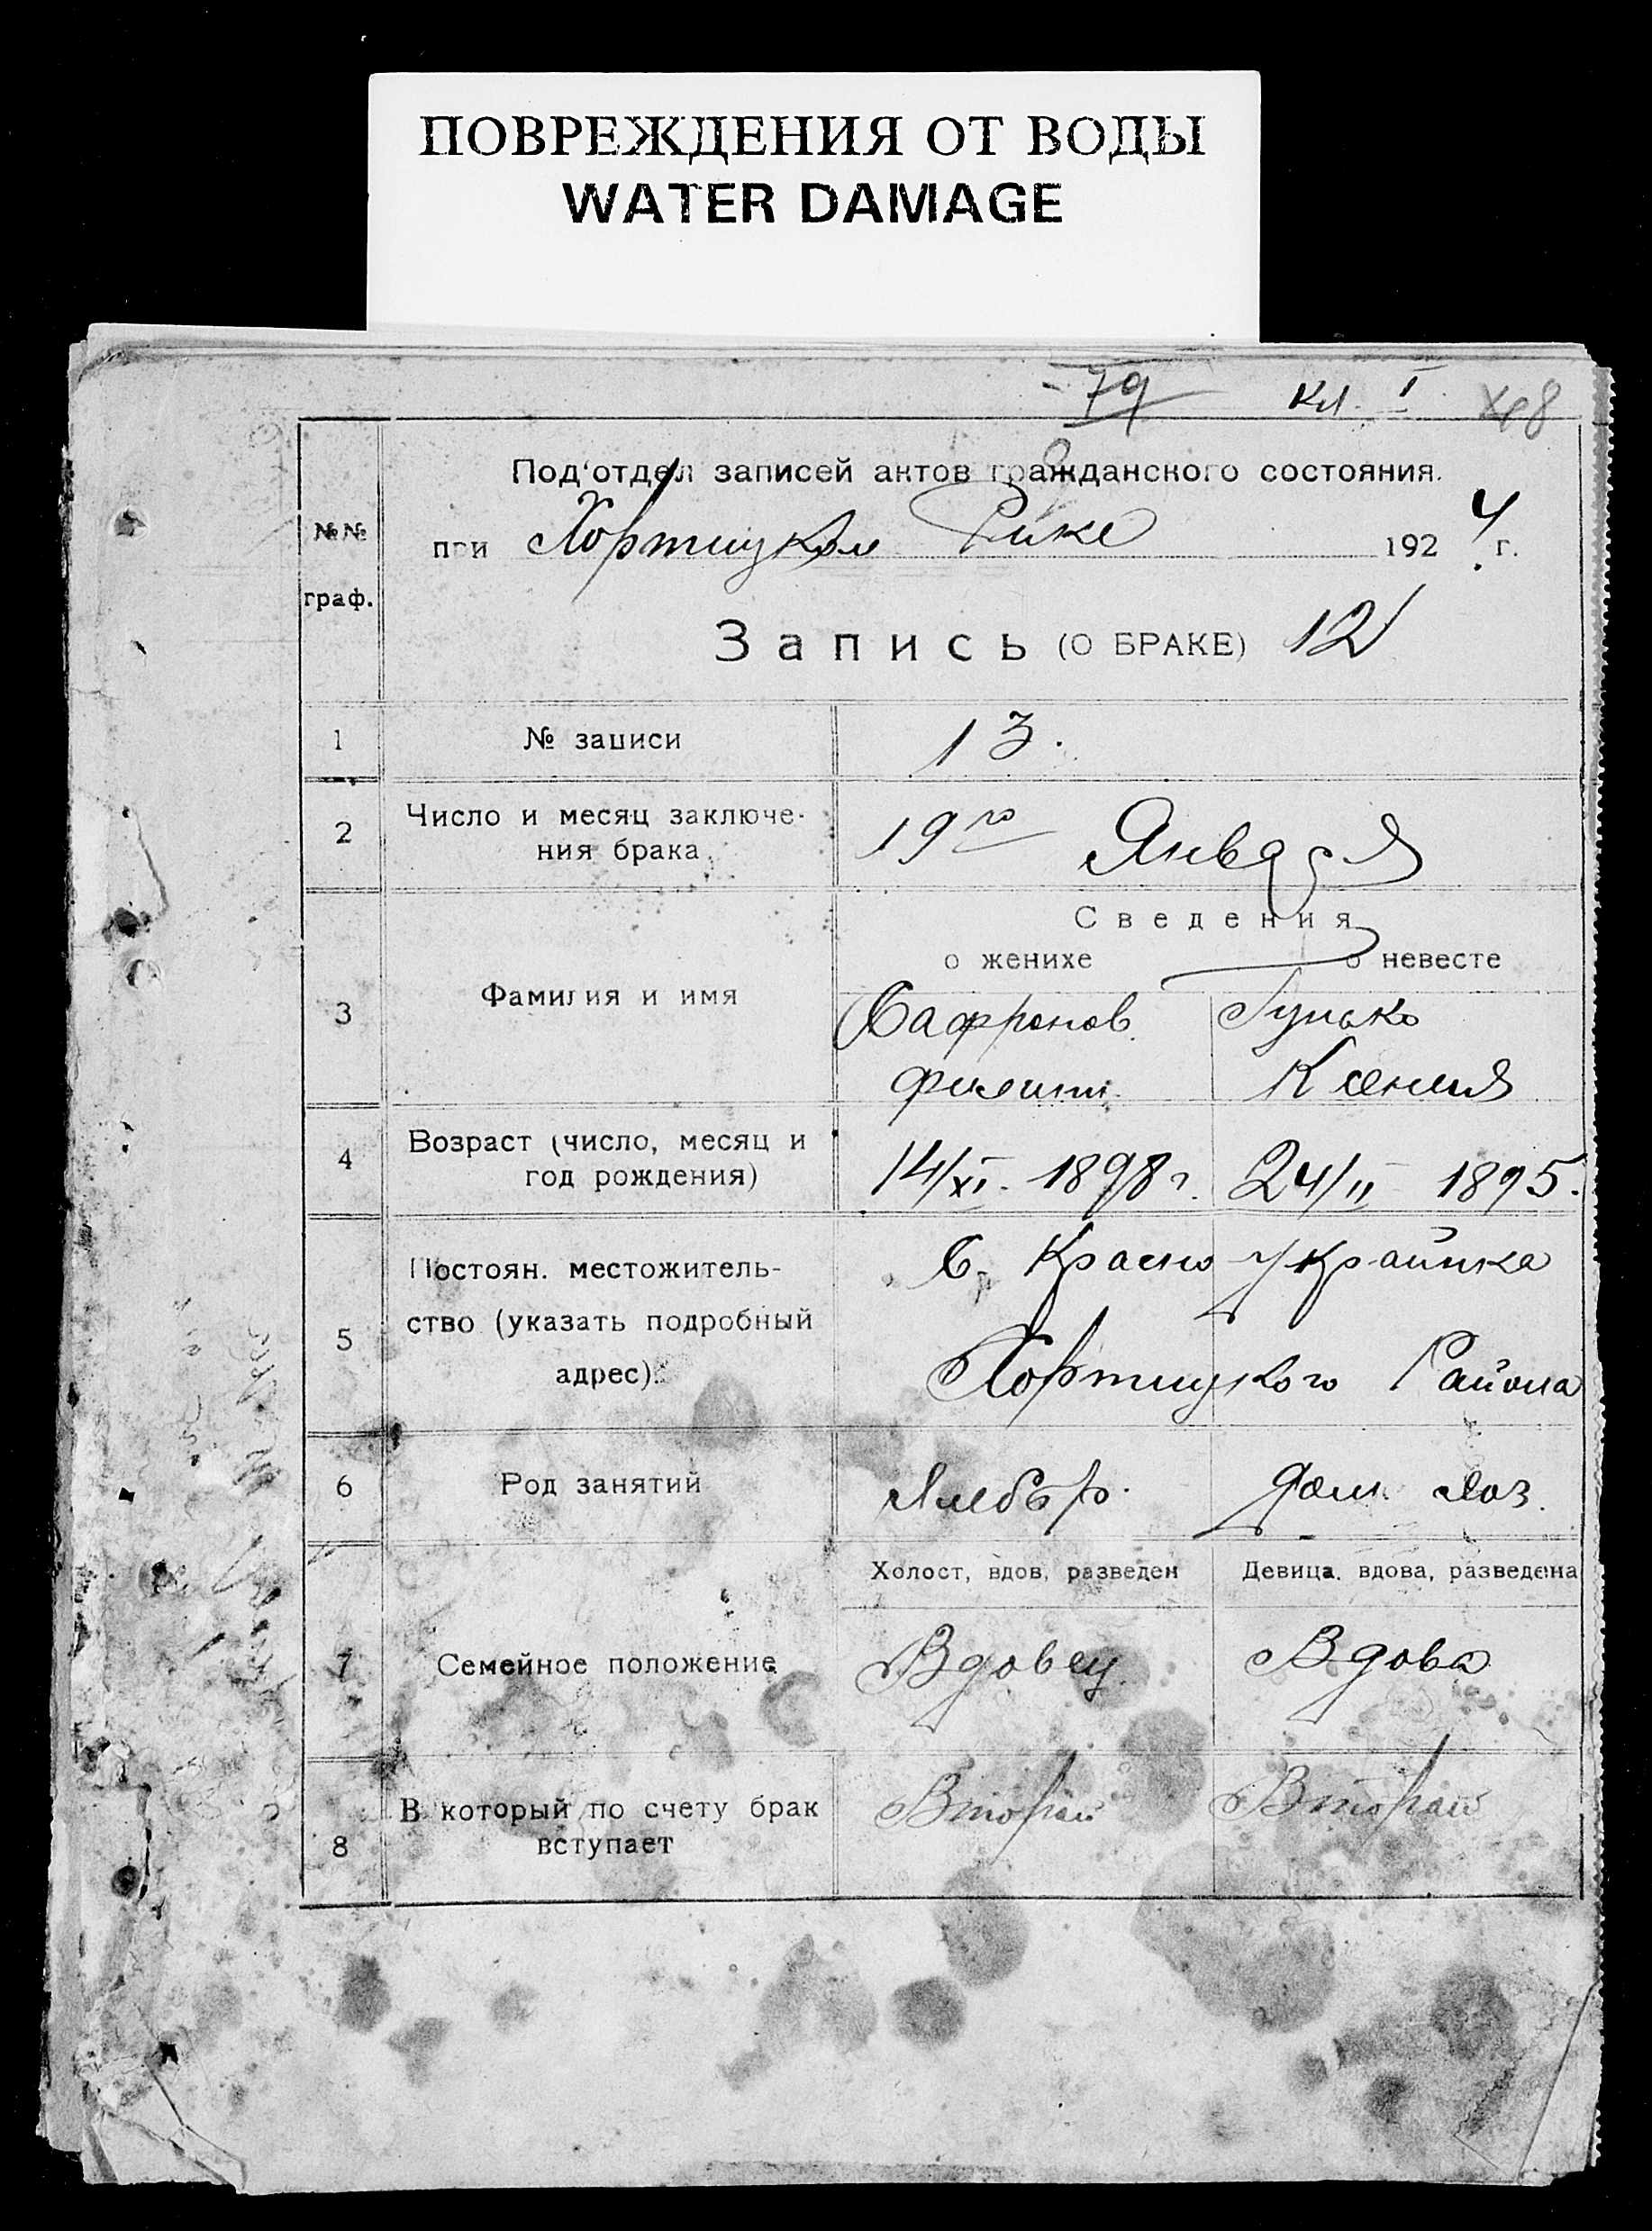 ПОВРЕЖДЕНИЯ ОТ ВОДЫ
WATER DAMAGE
79 Кл. I
Под'отдел записей актов гражданского состояния.
№№
при Хортицком Рике 1924 г.
граф.
Запись (О БРАКЕ) 12
1 № записи 13.
2 Число и месяц заключе-
ния брака 19го Января
Сведения
о женихе о невесте
3 Фамилия и имя Сафронов Гунько
Филипп Ксения
4 Возраст (число, месяц и
год рождения) 14/XI. 1898 г. 24/II 1895.
5 Постоян. местожитель-
ство (указать подробный
адрес). С. Красно Украинка
Хортицкого Района
6 Род занятий Хлебор. Дом. хоз.
Холост, вдов, разведен Девица, вдова, разведена
7 Семейное положение Вдовец Вдова
8 В который по счету брак
вступает Второй Второй